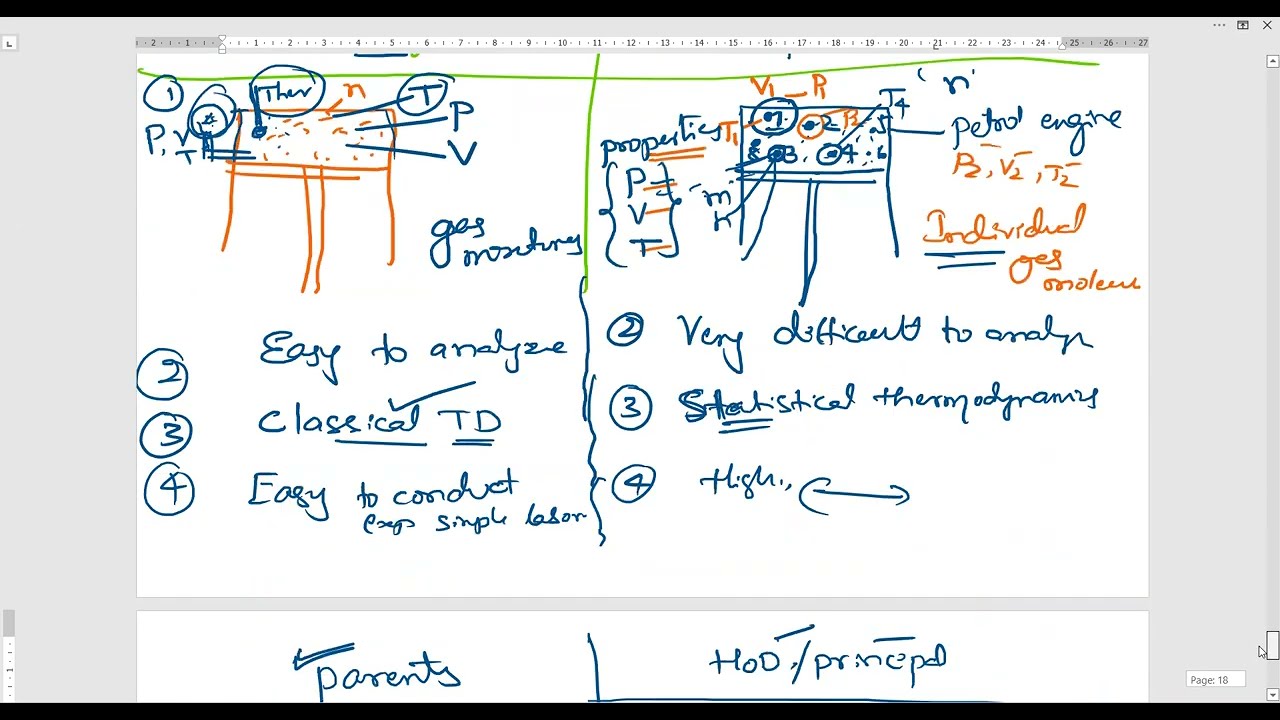 2 1 1 2 3 4 5 6 7 8 9 10 11 12 13 14 15 16 17 18 19 20 21 22 23 24 25 26 27
① Ther n T
P, V
T
P
V
gas
V1 P1
T1 1 2 3 4 5 6
T4
'n'
properties
P
V
T
"m"
n
Petrol engine
P2, V2, T2
Individual
gas
② Easy to analyze
③ Classical TD
④ Easy to conduct
simple
② Very difficult to
③ Statistical thermodynamics
④ High,
parents
HOD / principal
Page: 18